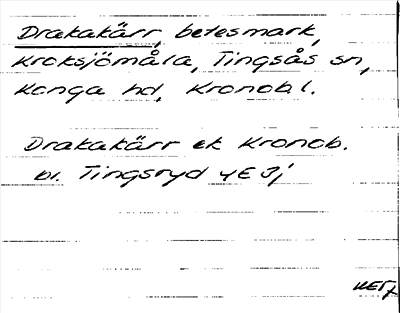 Drakakärr, betesmark,
Kroksjömåla, Tingsås sn,
Konga hd, Kronob l.
Drakakärr ek Kronob.
bl. Tingsryd 4E 3j